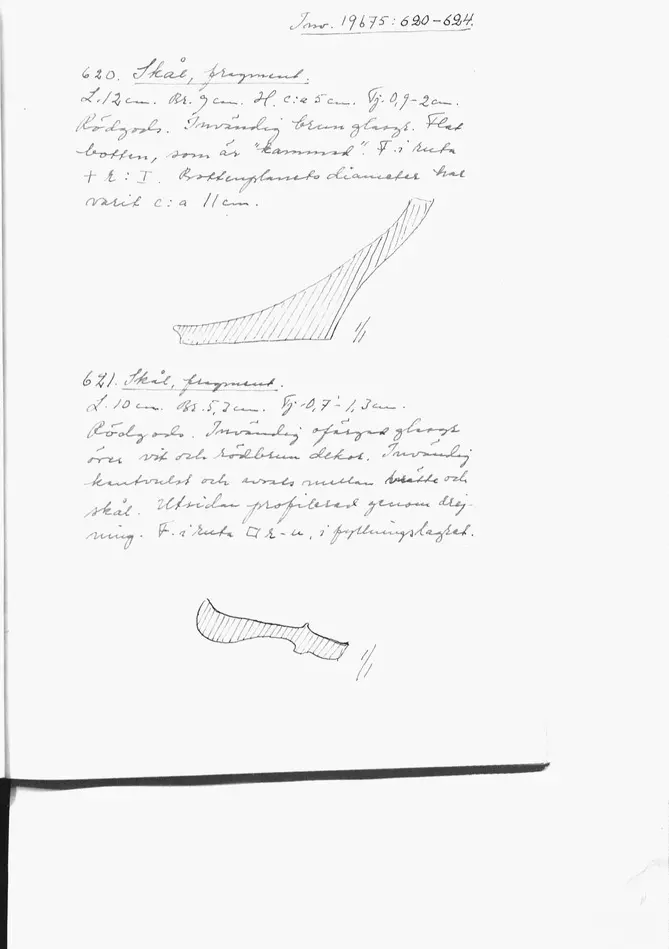 Inv. 19675:620-624.
620. Skål, fragment.
L. 12 cm. Br. 9 cm. H. c:a 5 cm. Tj. 0,9-2 cm.
Rödgods. Invändig brun glasyr. Flat
botten, som är "kammad". F. i ruta
+ R : I. Bottenplanets diameter har
varit c:a 11 cm.
1/1
621. Skål, fragment.
L. 10 cm. Br. 5,2 cm. Tj. 0,7-1,3 cm.
Rödgods. Invändig ofärgad glasyr
över vit och rödbrun dekor. Invändig
kantvulst och avsats mellan brätte och
skål. Utsidan profilerad genom drej-
ning. F. i ruta □ R-u, i fyllningslagret.
1/1